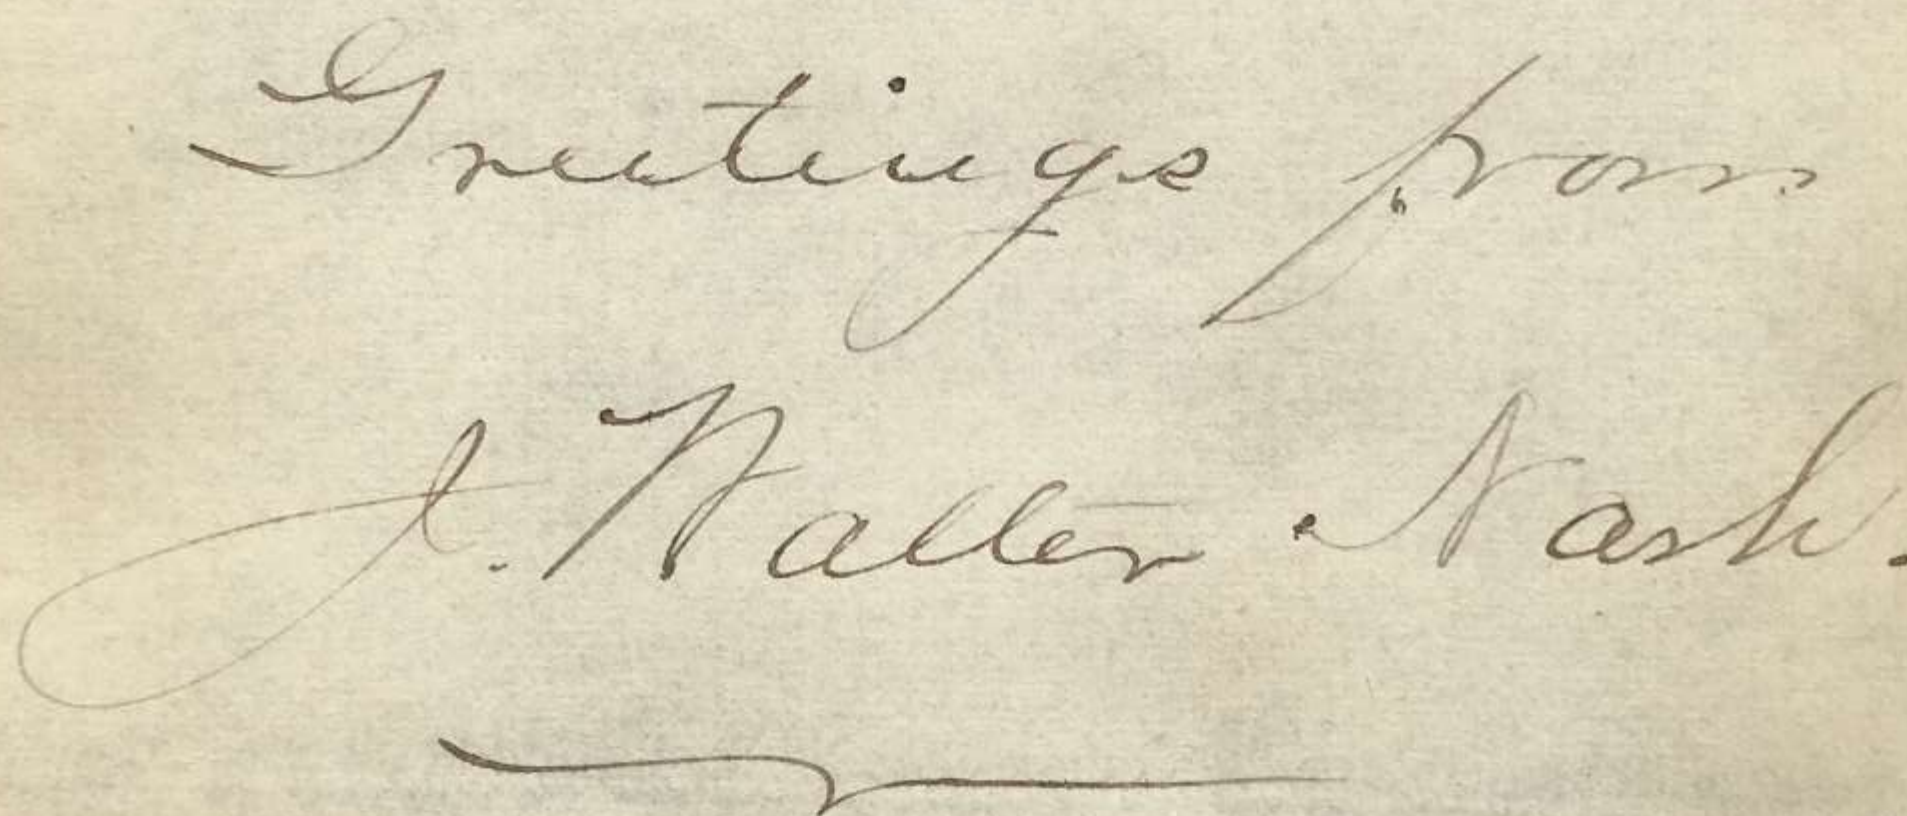 Greetings from
J. Walter Nash.